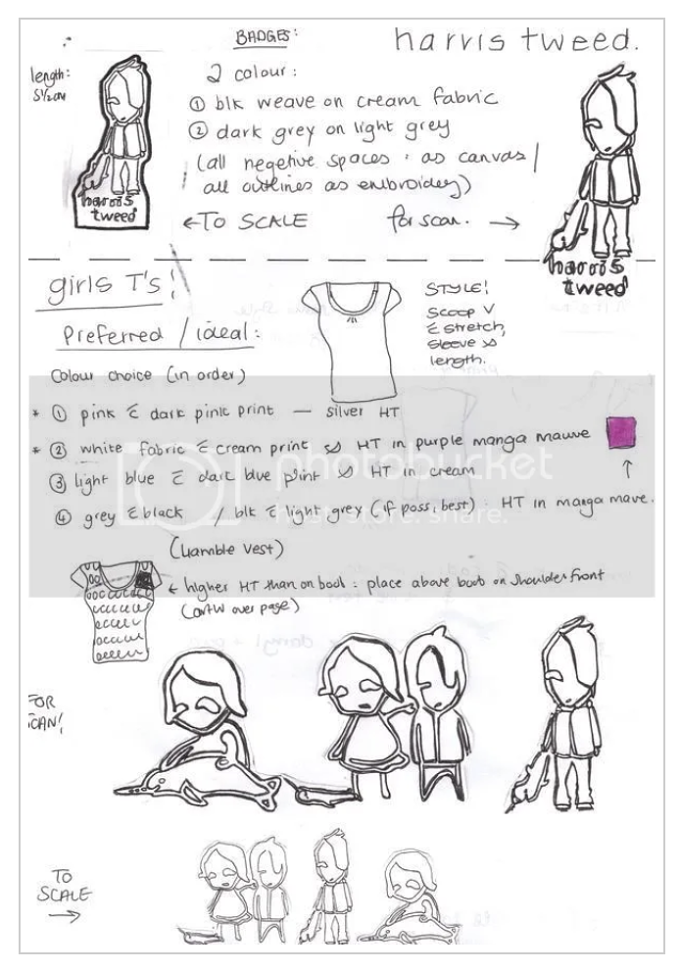 BADGES:
harris tweed.
length:
5 1/2 cm
2 colour:
① blk weave on cream fabric
② dark grey on light grey
(all negetive spaces : as canvas /
all outlines as embroidery)
harris
tweed
←TO SCALE for scan. →
harris
tweed
girls T's!
Preferred / ideal:
STYLE!
Scoop V
& stretch,
sleeve
length.
Colour choice (in order)
* ① pink & dark pink print — silver HT
* ② white fabric & cream print HT in purple manga mauve
③ light blue & dark blue print HT in cream
④ grey & black / blk & light grey (if poss, best) : HT in manga mave.
photobucket
host. store. share.
← higher HT than on boob : place above boob on shoulder front
over page)
FOR
SCAN!
TO
SCALE
→